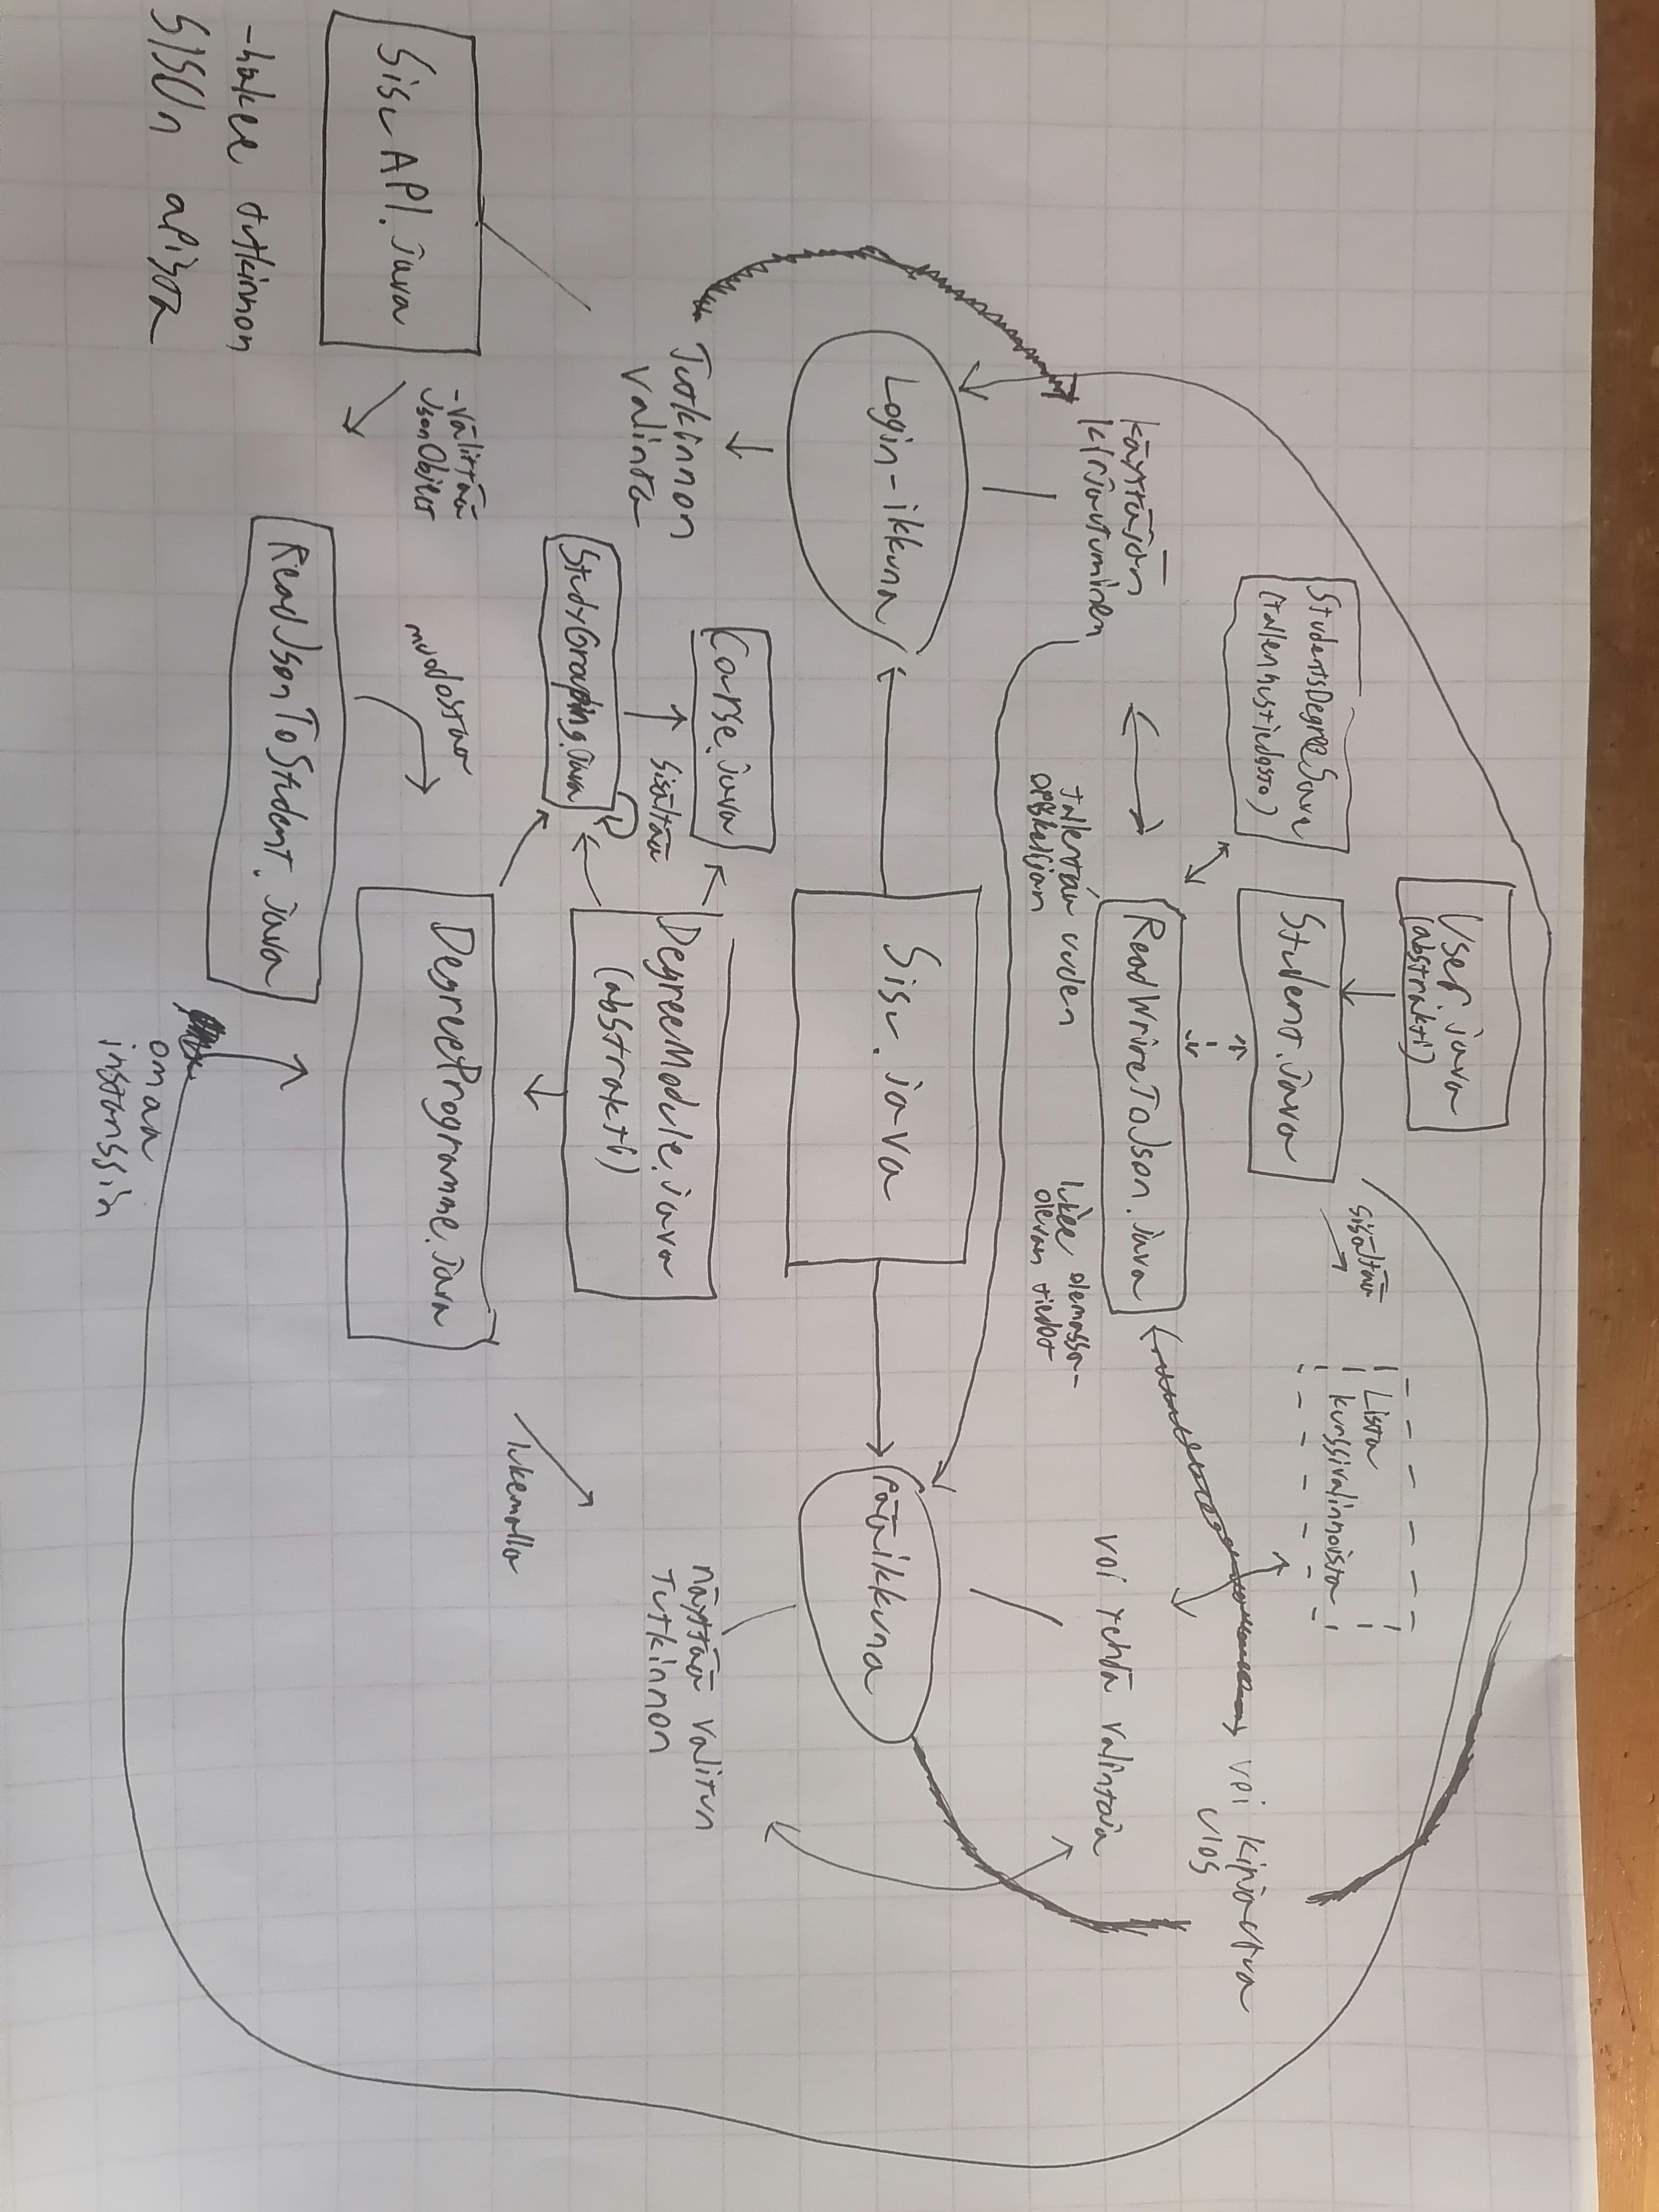 User.java
(abstrakti)
StudentsDegreeSave
(tallennustiedosto)
Student.java
sisältää
Lista
kurssivalinnoista
voi kirjautua
ulos
käyttäjän
kirjautuminen
ReadWriteToJson.java
tallentaa uuden
opiskelijan
lukee olemassa-
olevan tiedot
voi tehdä valintoja
Login-ikkuna
Sisu.java
pääikkuna
Tutkinnon
valinta
Course.java
sisältää
StudyGrouping.java
DegreeModule.java
(abstrakti)
näyttää valitun
Tutkinnon
lukemalla
SisuAPI.java
-välittää
JsonObject
muodostaa
DegreeProgramme.java
ReadJsonToStudent.java
-hakee tutkinnon
SISUn apista
omaa
instanssin